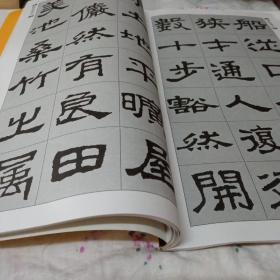 船
狹才通人復行
數十步豁然開
土地平曠屋
儼然有良田
美池桑竹之屬